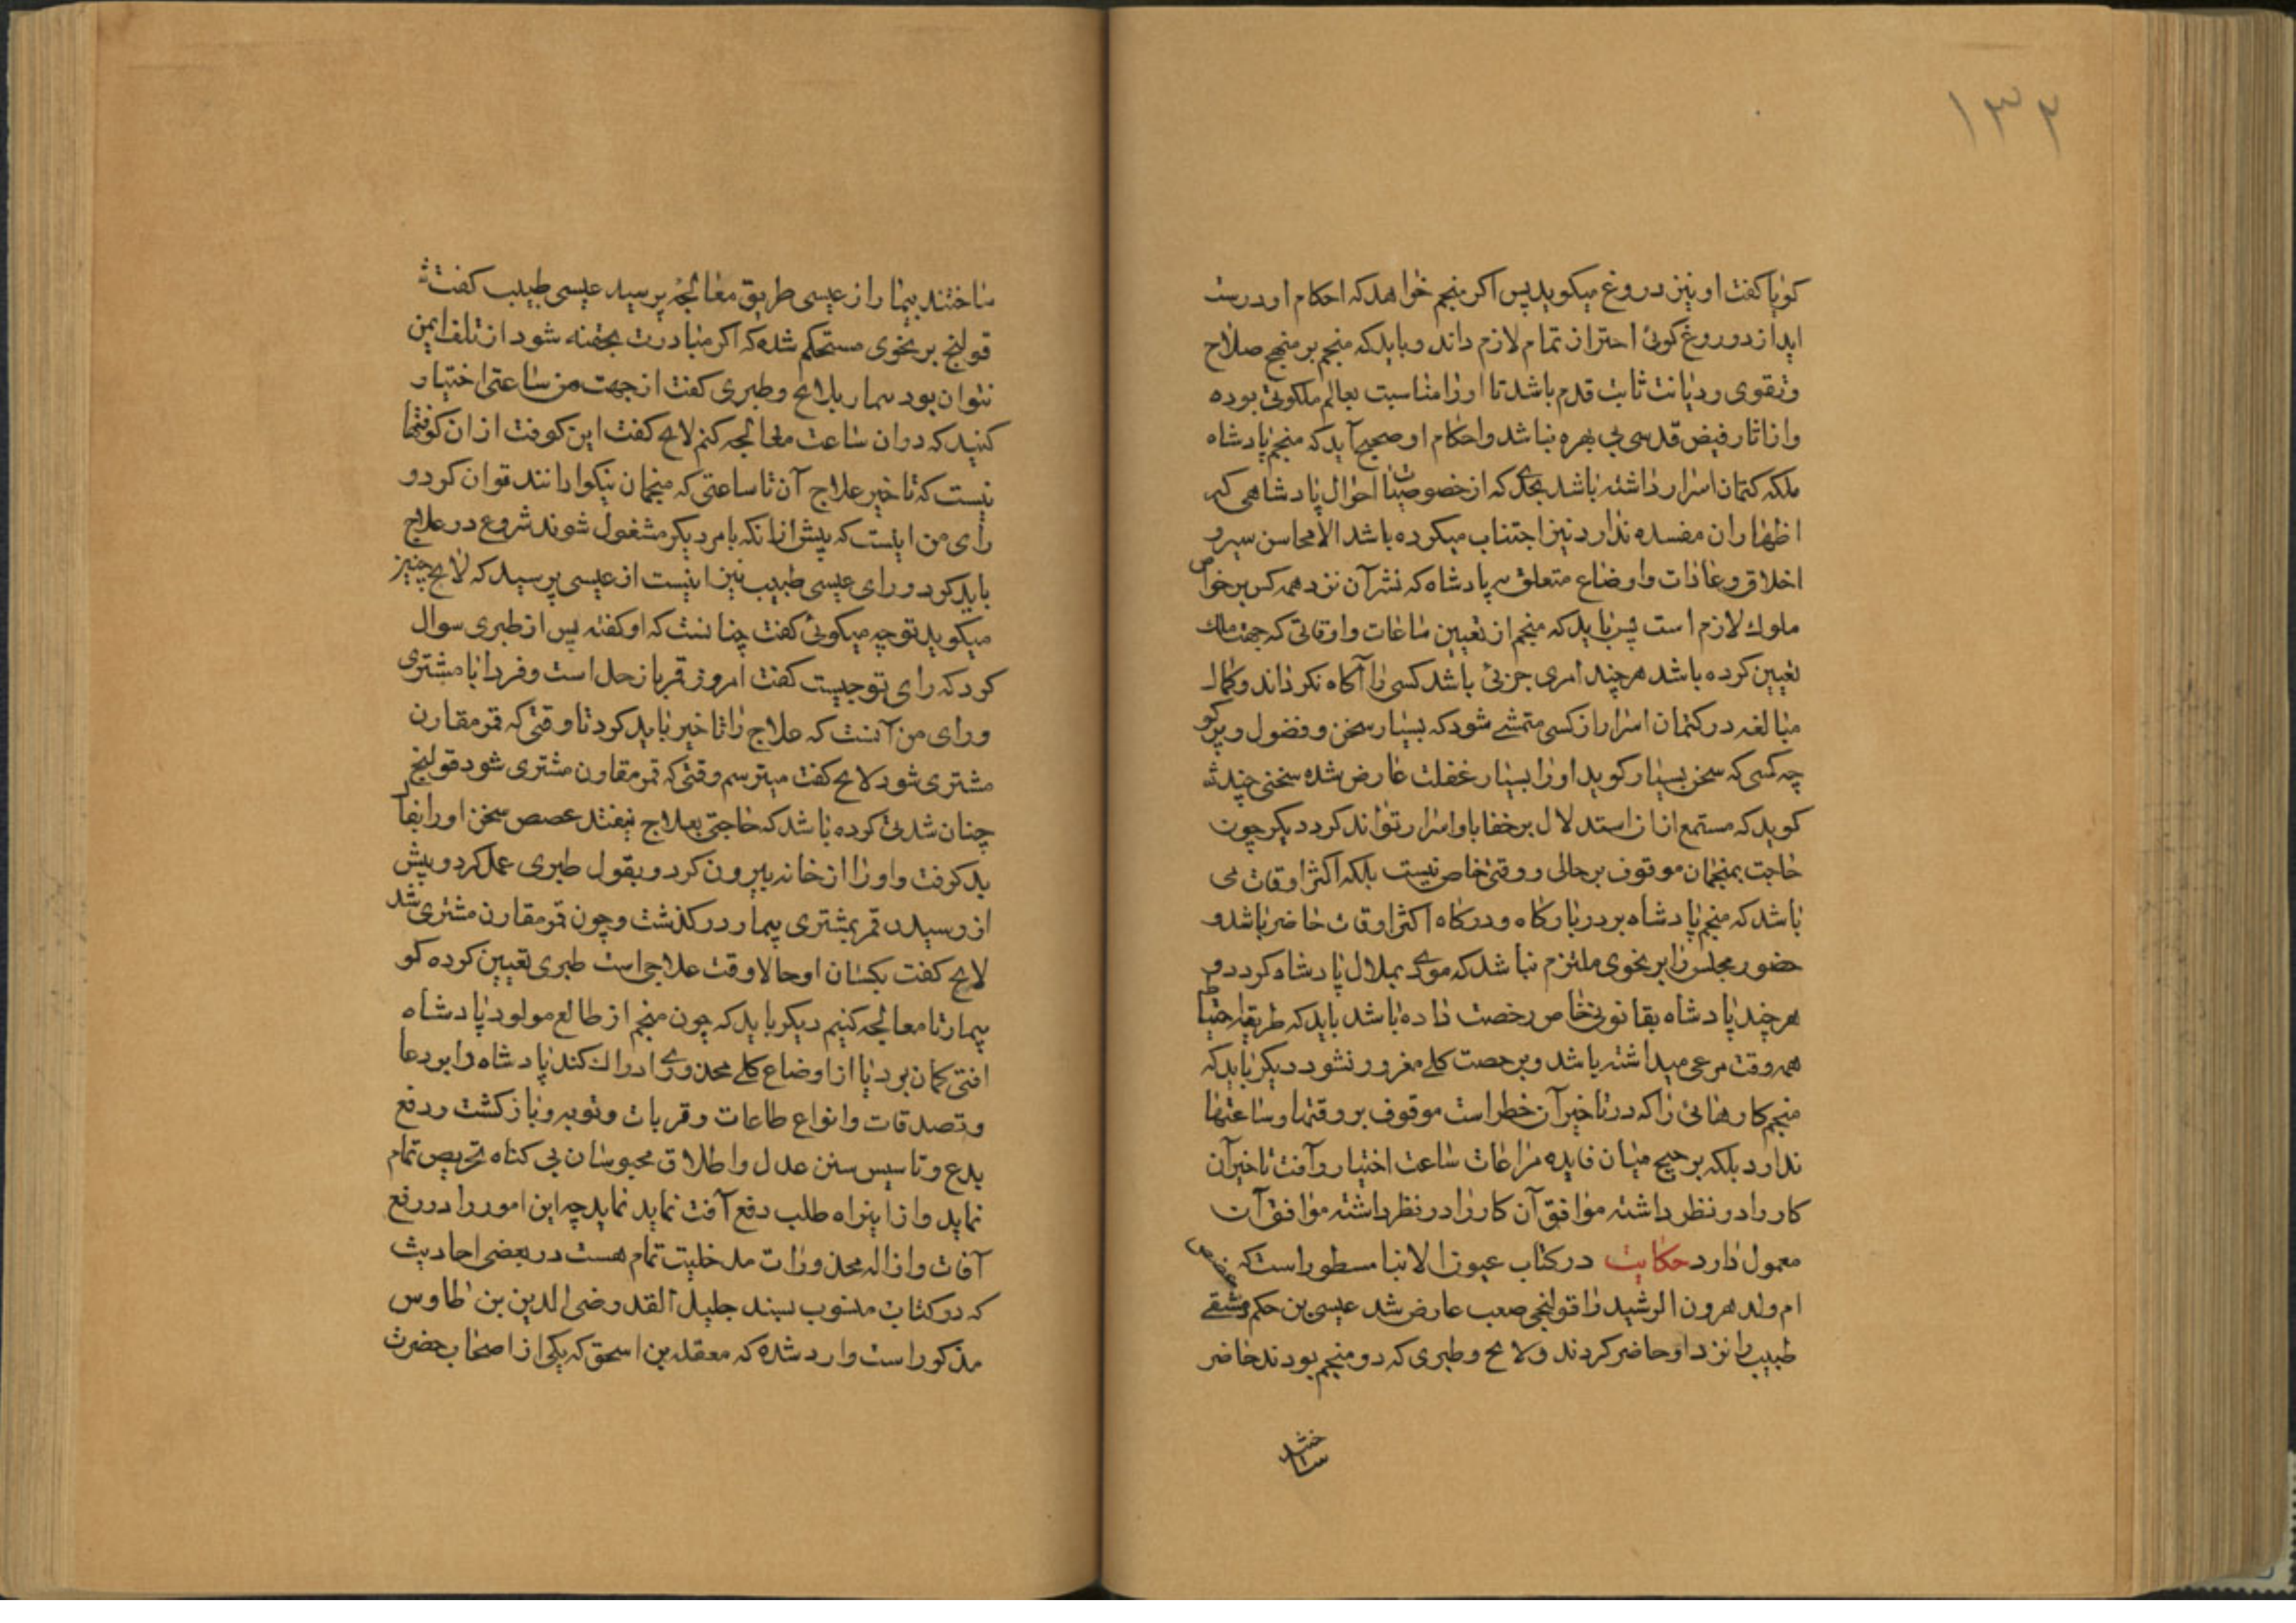 ۱۳۲
کویا کفت او نیز دروغ میکوید پس اکر منجم خواهد که احکام او درست
اید از دوروغ کوئی احتراز تمام لازم داند و باید که منجم بر منهج صلاح
وتقوی و دیانت ثابت قدم باشد تا او را مناسبت بعالم ملکوتی بوده
و از اثار فیض قدسی بی بهره نباشد و احکام او صحیح آید که منجم پادشاه
ملکه کتمان اسرار داشته باشد بحدی که از خصوصیات احوال پادشاهی که
اظهار ان مفسده ندارد نیز اجتناب میکرده باشد الا محاسن سیر و
اخلاق و عادات و اوضاع متعلق به پادشاه که نشر آن نزد همه کس بر خواص
ملوک لازم است پس باید که منجم از تعیین ساعات و اوقاتی که جهت ملک
تعیین کرده باشد هر چند امری جزئی باشد کسی را آکاه نکرداند و کمال
مبالغه در کتمان اسرار از کسی متمشی شود که بسیار سخن و فضول و پرکو
چه کسی که سخن بسیار کوید او را بسیار غفلت عارض شده سخنی چند
کوید که مستمع ازان استدلال بر خفایا و اسرار تواند کرد دیکر چون
حاجت بمنجمان موقوف بر حالی و وقتی خاص نیست بلکه اکثر اوقات می
باشد که منجم پادشاه بر دربارکاه و درکاه اکثر اوقات حاضر باشد و
حضور مجلس را بر نحوی ملتزم نباشد که مودی بملال پادشاه کردد و
هر چند پادشاه بقانونی خاص رخصت داده باشد باید که طریق احتیاط
همه وقت مرعی میداشته باشد و برخصت کلی مغرور نشود دیکر باید که
منجم کارهائی را که در تاخیر آن خطر است موقوف بر وقتها و ساعتها
ندارد بلکه ترجیح میان فایده مراعات ساعت اختیار و آفت تاخیر آن
کار را در نظر داشته موافق آن کار را در نظر داشته موافق آن
معمول دارد حکایت در کتاب عیون الانبا مسطور است که
ام ولد هرون الرشید را قولنجی صعب عارض شد عیسی بن حکم دمشقی
طبیب را نزد او حاضر کردند و لا بح و طبری که دو منجم بودند حاضر
ساختند
ساختند بیمار از عیسی طریق معالجه پرسید عیسی طبیب کفت
قولنج بر نحوی مستحکم شده که اکر مبادرت بحقنه شود از تلف ایمن
نتوان بود بیمار بلابح و طبری کفت از جهت من ساعتی اختیار
کنید که دران ساعت معالجه کنم لابح کفت این کوفت از ان کوفتها
نیست که تاخیر علاج آن تا ساعتی که منجمان نیکو دانند توان کرد و
رای من اینست که پیش ازانکه بامر دیکر مشغول شوند شروع در علاج
باید کرد و رای عیسی طبیب نیز اینست از عیسی پرسید که لابح چنین
میکوید تو چه میکوئی کفت چنانست که او کفته پس از طبری سوال
کرد که رای تو چیست کفت امروز قمر با زحل است و فردا با مشتری
و رای من آنست که علاج را تاخیر باید کرد تا وقتی که قمر مقارن
مشتری شود لابح کفت میترسم وقتی که قمر مقارن مشتری شود قولنج
چنان شدتی کرده باشد که حاجتی بعلاج نیفتد سخن او را بفال
بد کرفت و او را از خانه بیرون کرد و بقول طبری عمل کرد و پیش
از رسیدن قمر بمشتری بیمار در کذشت و چون قمر مقارن مشتری شد
لابح کفت بکسان او حالا وقت علاجی است طبری تعیین کرده کو
بیمار تا معالجه کنیم دیکر باید که چون منجم از طالع مولود پادشاه
افتی کمان برد یا از اوضاع کلی محذوری ادراک کند پادشاه را بر دعا
و تصدقات و انواع طاعات و قربات و توبه و بازکشت و دفع
بدع و تاسیس سنن عدل و اطلاق محبوسان بی کناه تحریص تمام
نماید و از اینراه طلب دفع آفت نماید نماید چه این امور را در رفع
آفات و ازاله محذورات مدخلیت تمام هست در بعضی احادیث
که در کتاب منسوب بسید جلیل القدر رضی الدین بن طاوس
مذکور است وارد شده که بن اسحق که یکی از اصحاب حضرت